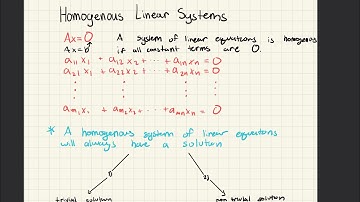 Homogenous Linear Systems
Ax=0 A system of linear equations is homogenous
Ax=b if all constant terms are 0.
a₁₁x₁ + a₁₂x₂ + ⋯ + a₁ₙxₙ = 0
a₂₁x₁ + a₂₂x₂ + ⋯ + a₂ₙxₙ = 0
⋮ ⋮ ⋮ ⋮
aₘ₁x₁ + aₘ₂x₂ + ⋯ + aₘₙxₙ = 0
* A homogenous system of linear equations
will always have a solution
1) 2)
trivial solution non trivial solution